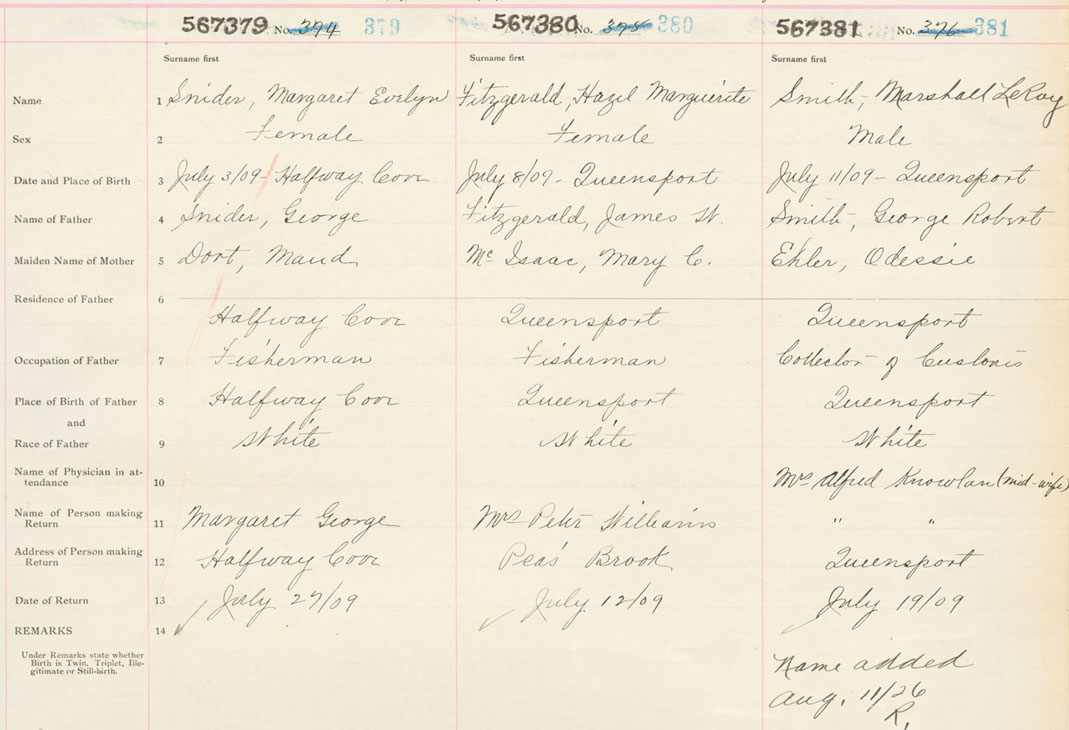 567379 No. 374 379 567380 No. 375 380 567381 No. 376 381
Surname first Surname first Surname first
Name 1 Snider, Margaret Evelyn Fitzgerald, Hazil Marguerite Smith, Marshall LeRoy
Sex 2 Female Female Male
Date and Place of Birth 3 July 3/09 - Halfway Cove July 8/09 - Queensport July 11/09 - Queensport
Name of Father 4 Snider, George Fitzgerald, James W. Smith, George Robert
Maiden Name of Mother 5 Dort, Maud Mc Isaac, Mary C. Ehler, Odessie
Residence of Father 6
Halfway Cove Queensport Queensport
Occupation of Father 7 Fisherman Fisherman Collector of Customs
Place of Birth of Father 8 Halfway Cove Queensport Queensport
and
Race of Father 9 White White White
Name of Physician in at-
tendance 10 Mrs Alfred Knowlan (mid-wife)
Name of Person making
Return 11 Margaret George Mrs Peter Williams " "
Address of Person making
Return 12 Halfway Cove Peas Brook Queensport
Date of Return 13 July 27/09 July 12/09 July 19/09
REMARKS 14
Under Remarks state whether
Birth is Twin, Triplet, Ille-
gitimate or Still-birth.
Name added
Aug. 11/26
R.